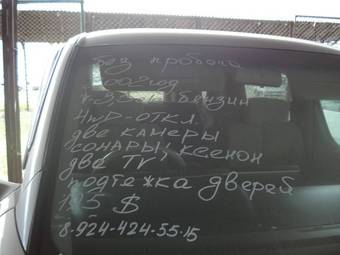 без пробега
2002год
бензин
4WD-откл.
две камеры
сонары, ксенон
два TV,
подтяжка дверей
$
8-924-424-55-15